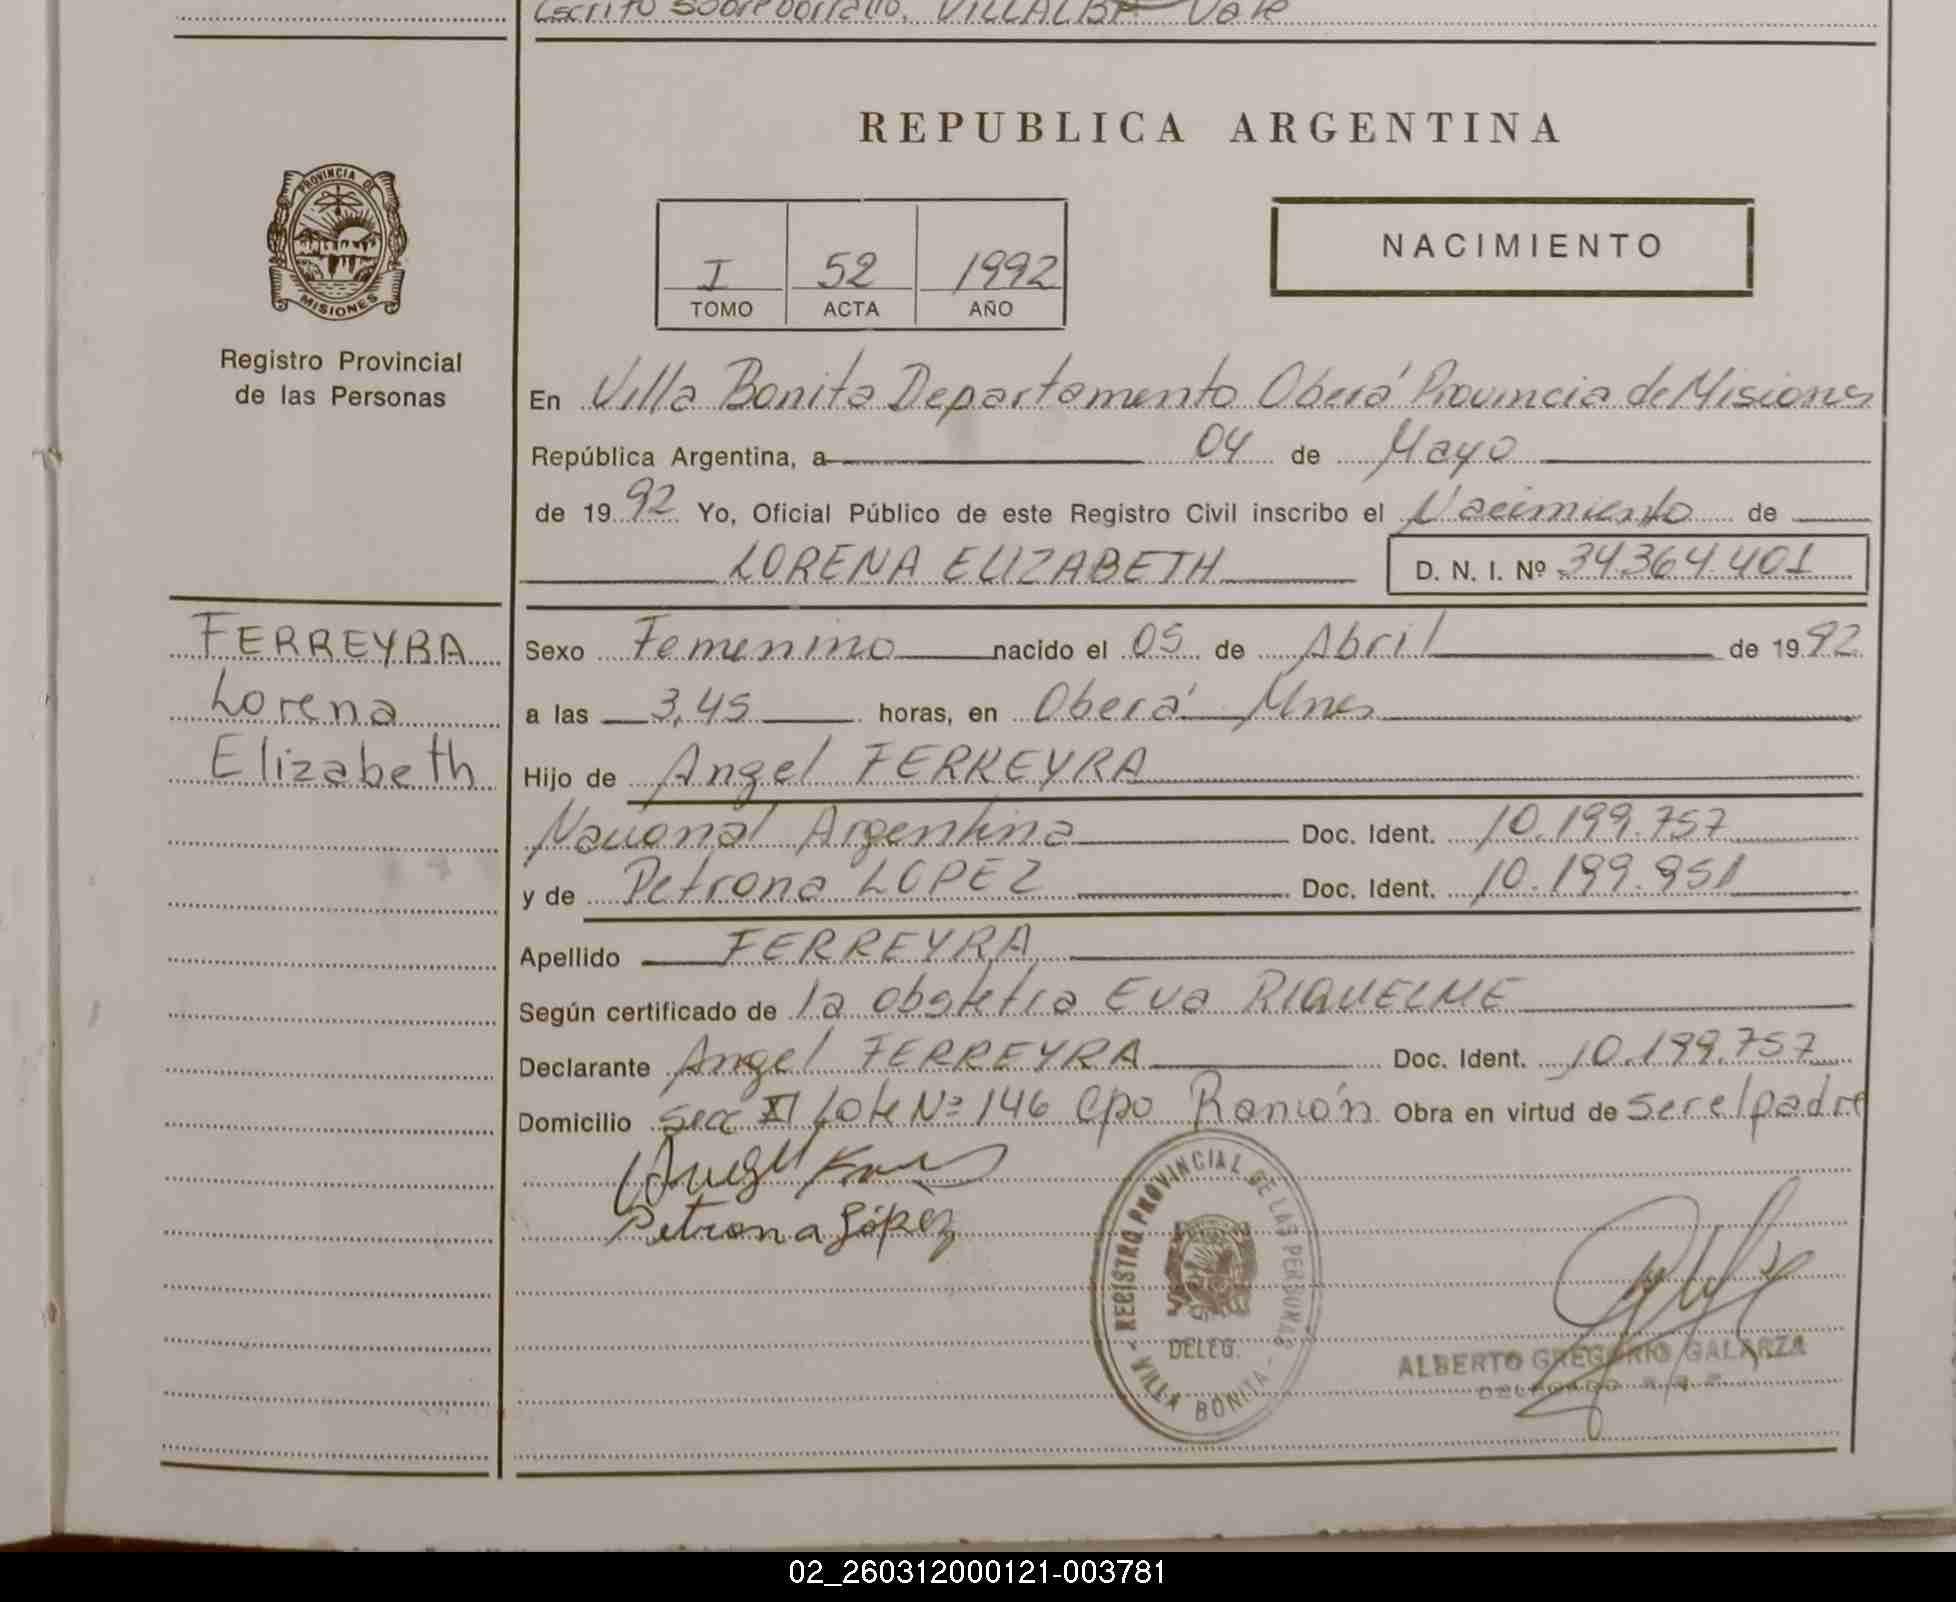 Escrito sobre borrado, VILLALBA Vale
REPUBLICA ARGENTINA
PROVINCIA DE
MISIONES
Registro Provincial
de las Personas
I 52 1992
TOMO ACTA AÑO
NACIMIENTO
En Villa Bonita Departamento Oberá Provincia de Misiones
República Argentina, a 04 de Mayo
de 1992 Yo, Oficial Público de este Registro Civil inscribo el Nacimiento de
LORENA ELIZABETH D. N. I. Nº 34.364.401
FERREYRA
Lorena
Elizabeth
Sexo Femenino nacido el 05 de Abril de 1992
a las 3,45 horas, en Oberá Mnes
Hijo de Angel FERREYRA
Nacional Argentina Doc. Ident. 10.199.757
y de Petrona LOPEZ Doc. Ident. 10.199.951
Apellido FERREYRA
Según certificado de la obstetra Eva RIQUELME
Declarante Angel FERREYRA Doc. Ident. 10.199.757
Domicilio secc XI Lote Nº 146 Cpo Ramón Obra en virtud de ser el padre
Angel
Petrona López
REGISTRO PROVINCIAL DE LAS PERSONAS
DELEG.
VILLA BONITA
ALBERTO GREGORIO GALARZA
DELEGADO R. P. P.
02_260312000121-003781